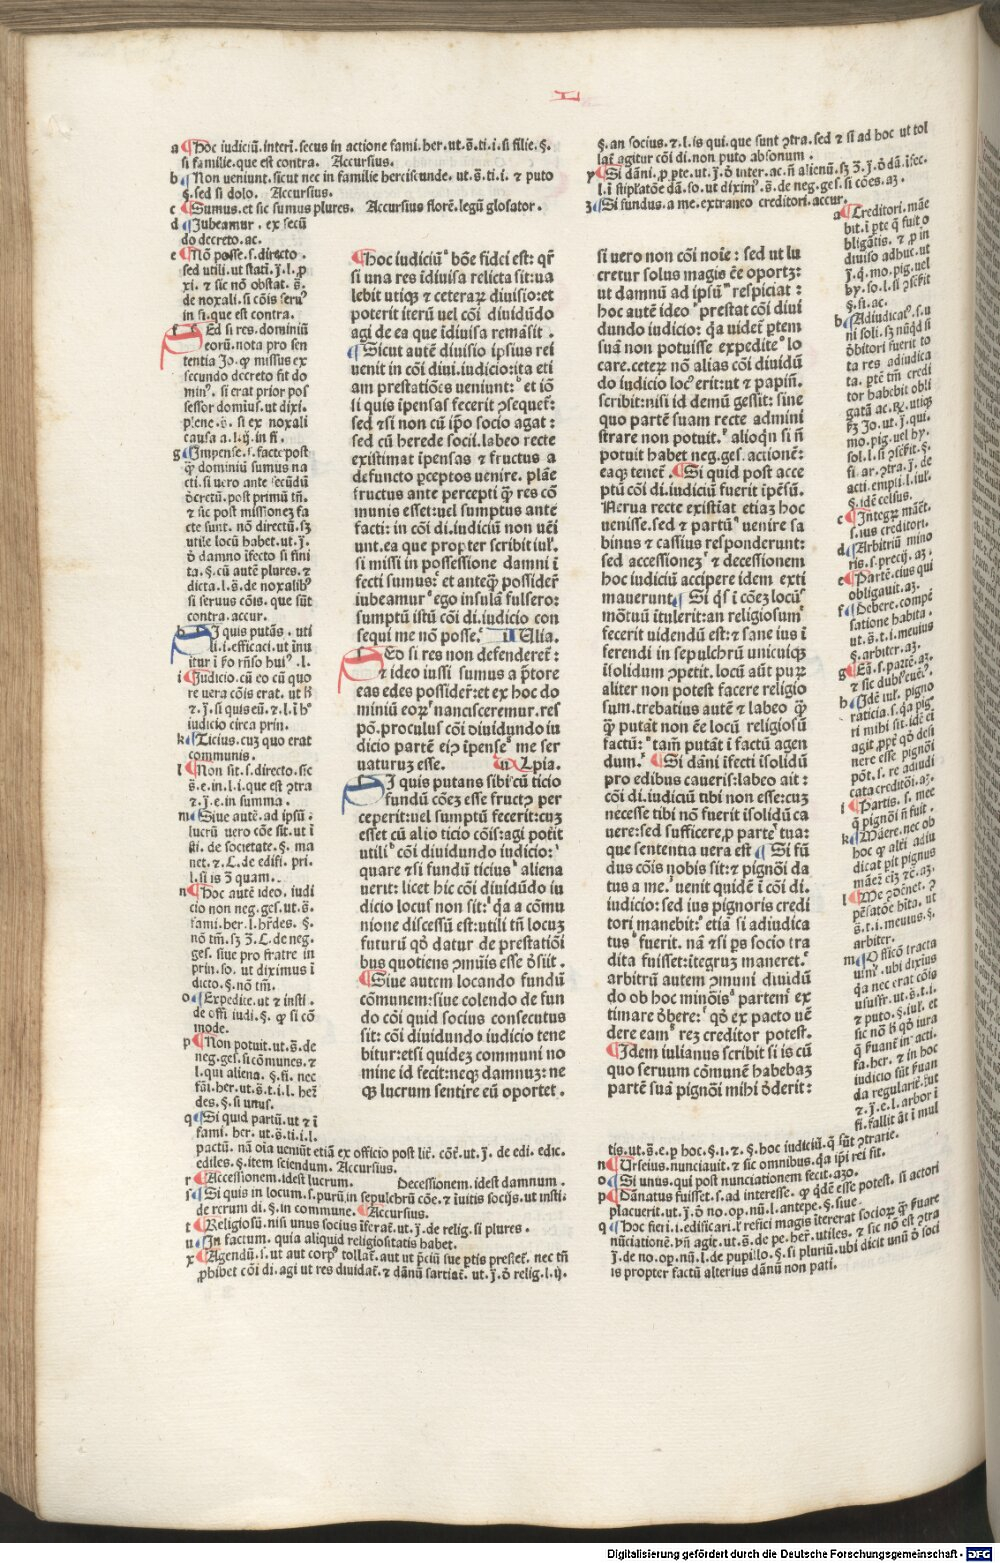 L
a Hoc iudiciū.interī.secus in actione fami.her.ut.s̄.ti.i.si filie.§.
si familie.que est contra. Accursius.
b Non veniunt.sicut nec in familie herciscunde.ut.s̄.ti.i. ⁊ puto
§.sed si dolo. Accursius.
c Sumus.et sic sumus plures. Accursius florē.legū glosator.
d Iubeamur. ex secū
do decreto.ac.
e Nō posse.s.directo.
sed utili.ut stati.J.l.ꝓ
xi. ⁊ sic nō obstat.s̄.
de noxali.si cōis seruꝰ
in si.que est contra.
f Sed si res.dominiū
eorū.nota pro sen
tentia Jo.ꝙ missus ex
secundo decreto fit do
minꝰ.si erat prior pos
sessor domius.ut dixi.
plene.s̄. si ex noxali
causa a.l.ij.in fi.
g Impense.s.facte post
ꝙ̄ dominiū sumus na
cti.si uero ante secūdū
ꝺcretū.post primū tn̄.
⁊ sic post missionez fa
cte sunt. nō directū.sꝫ
utile locū habet.ut.J.
ꝺ damno īfecto si fini
ta.§.cū autē plures.⁊
dicta.l.s̄.de noxalibꝰ
si seruus cōis. que sūt
contra.accur.
h Si quis putās. uti
li.i.efficaci.ut īnu
i Iudicio.cū eo cū quo
iudicio circa prin.
k Ticius.cuz quo erat
communis.
l Non sit.s.directo.sic
s̄.e.in.l.i.que est ꝯtra
⁊.J.e.in summa.
m Siue autē.ad ipsū:
lucrū uero cōe sit.ut ī
sti.de societate.§. ma
net.⁊.C.de edifi. pri.
l.si is ꝫ quam.
n Hoc autē ideo. iudi
cio non neg.ges.ut.s̄.
fami.her.l.hr̄des. §.
nō tm̄.sꝫ ꝫ.C.de neg.
ges. siue pro fratre in
prin.so. ut diximus ī
dicto.§.nō tm̄.
o Expedite.ut ⁊ insti.
de offi iudi.§. ꝙ si cō
mode.
p Non potuit.ut.s̄.de
neg.ges.si cōmunes.⁊
l.qui aliena. §.fi. nec
fāi.her.ut.s̄.t.i.l. her̄
des.§.si unus.
q Si quid partū.ut ⁊ ī
fami. her. ut.s̄.ti.i.l.
pactū. nā oīa veniūt etiā ex officio post lit̄. cōt̄.ut.J. de edi. edic.
ediles.§.item sciendum. Accursius.
r Accessionem.idest lucrum. Decessionem.idest damnum.
s Si quis in locum.s.purū.in sepulchrū cōe.⁊ īuitis socijs.ut insti.
de rerum di.§.in commune. Accursius.
t Religiosū.nisi unus socius īferat̄.ut.J.de relig.si plures.
u In factum. quia aliquid religiositatis habet.
x Agendū.s.ut aut corpꝰ tollat̄.aut ut p̄ciū sue ꝑtis prestet̄. nec tn̄
ꝓhibet cōi di.agi ut res diuidat̄.⁊ dānū sartiat̄. ut.J.ꝺ relig.l.ij.
Hoc iudiciūᵃ bōe fidei est: qr̄
si una res īdiuisa relicta sit:ua
lebit utiqꝫ ⁊ ceteraꝝ diuisio:et
poterit iterū uel cōi diuidūdo
agi de ea que īdiuisa remāsit.
Sicut autē diuisio ipsius rei
uenit in cōi diui.iudicio:ita eti
am prestatiōes ueniunt:ᵇ et iō
li quis īpensas fecerit ꝯsequet̄:
sed ⁊si non cū ip̄o socio agat:
sed cū herede socii.labeo recte
existimat īpensas ⁊ fructus a
defuncto ꝑceptos uenire. plāe
fructus ante percepti ꝙ̄ res cō
munis esset:uel sumptus ante
facti: in cōi di.iudiciū non uēi
unt.ea que propter scribit iul̄.
si missi in possessione damni ī
fecti sumus:ᶜ et anteꝙ̄ possider̄
iubeamurᵈ ego insulā fulsero:
sumptū istū cōi di.iudicio con
sequi me nō posse.ᵉ iulia.
Sed si res non defenderet̄:
⁊ ideo iussi sumus a p̄tore
eas edes possider̄:et ex hoc do
miniū eoꝝᶠ nancisceremur.res
pō.proculus cōi diuidundo iu
dicio partē eiꝯ īpenseᵍ me ser
uaturuz esse. ulpia.
Si quis putans sibiʰcū ticio
fundū cōez esse fructꝯ per
ceperit:uel sumptū fecerit:cuz
esset cū alio ticio cōis:agi pot̄it
utiliⁱ cōi diuidundo iudicio:
quare ⁊si fundū ticiusᵏ aliena
uerit: licet hic cōi diuidūdo iu
dicio locus non sit:ˡ qā a cōmu
nione discessū est:utili tn̄ locuz
futurū qꝺ̄ datur de prestatiōi
bus quotiens ꝯmūis esse ꝺsiit.
Siue autem locando fundū
cōmunem:siue colendo de fun
do cōi quid socius consecutus
sit: cōi diuidundo iudicio tene
bitur:etsi quidez communi no
mine id fecit:neqꝫ damnuz: ne
qꝫ lucrum sentire eū oportet.
si vero non cōi noīe: sed ut lu
cretur solus magis ēe oportꝫ:
ut damnū ad ipsūᵐ respiciat:
hoc autē ideoⁿ prestat cōi diui
dundo iudicio: qa videt̄ ꝑtem
suā non potuisse expediteᵒ lo
care.ceteꝝ nō alias cōi diuidū
do iudicio locꝰ erit:ut ⁊ papiñ.
scribit:nisi id demū gessit: sine
quo partē suam recte admini
strare non potuit.ᵖ alioqn̄ si n̄
potuit habet neg.ges. actionē:
eaqꝫ tenet̄. Si quid post acce
ptū cōi di.iudiciū fuerit īpēsū.
Nerua recte existiat etiaz hoc
uenisse.sed ⁊ partū venire sa
binus ⁊ cassius responderunt:
sed accessionezʳ ⁊ decessionem
hoc iudiciū accipere idem exti
mauerunt. Si qs̄ˢ ī cōez locū
mōtuū ītulerit:an religiosumᵗ
fecerit uidendū est:⁊ sane ius ī
ferendi in sepulchrū unicuiqꝫ
īsolidum ꝯpetit. locū aūt puꝝ
aliter non potest facere religio
sum.trebatius autē ⁊ labeo ꝙ̄
ꝙ̄ putāt non ēe locū religiosū
factū:ᵘ tam̄ putāt ī factū agen
dum.ˣ Si dāni īfecti īsolidū
pro edibus caueris:labeo ait:
cōi di.iudiciū tibi non esse:cuz
necesse tibi nō fuerit īsolidū ca
uere:sed sufficere,ꝓ parteʸ tua:
que sententia uera est Si fū
dus cōis nobis sit:⁊ pignōi da
tus a me.ᶻ uenit quidē ī cōi di.
iudicio:sed ius pignoris credi
tori manebit:ᵃ etiā si adiudica
tusᵇ fuerit. nā ⁊si ꝑs socio tra
dita fuisset:ītegruz maneret.ᶜ
arbitrū autem ꝯmuni diuidū
do ob hoc minōisᵈ partemᵉ ex
timare ꝺbere:ᶠ qꝺ̄ ex pacto uē
dere eamᵍ rez creditor potest.
Idem iulianus scribit si is cū
quo seruum cōmunē habebaz
partē suā pignōi mihi ꝺderit:
§.an socius.⁊.l.is qui.que sunt ꝯtra.sed ⁊ si ad hoc ut tol
lat̄ agitur cōi di.non puto absonum.
y Si dāni.ꝓ ꝑte.ut.J.ꝺ inter.ac.n̄ alienū.sꝫ ꝫ.J.ꝺ dā.īfec.
l.i stipl̄atōe dā.so.ut diximꝰ.s̄.de neg.ges.si cōes.aꝫ.
z Si fundus.a me.extraneo creditori.accur.
a Creditori.māe
bit.ī ꝑte q̄ fuit o
bligātis. ⁊ ꝓ in
diuiso adhuc.ut
J.q̄.mo.pig.uel
hy.so.l.si ꝯsēsit
§.si.ac.
b Adiudicatꝰ.s.u
ni soli.sꝫ nūqd si
ꝺbitori fuerit to
ta res adiudica
ta. ꝑtē tm̄ credi
tor habebit obli
mo.pig.uel hy.
sol.l.si ꝯsēsit.§.
si ar.ꝯtra.J. de
acti.empti.l.iul.
§.idē celsus.
c Integꝝ māet̄.
s.ius creditori.
d Arbitriū mino
ris.s.precij.aꝫ.
e Partē.eius qui
obligauit.aꝫ.
f Debere.compē
satione habita.
ut.s̄.t.i.meuius
§.arbiter.aꝫ.
g Eā.s.partē.aꝫ.
h Idē iul. pigno
ri mihi sit.idē ei
agit.ꝓpt̄ qꝺ̄ desi
nere esse pignōi
pōt.s. re adiudi
cata creditōi.aꝫ.
i Partis.s. mee
q̄ pignōi n̄ fuit.
k Māere.nec ob
hoc ꝙ alt̄i adiu
dicat̄ pit pignus
arbiter.
m Officō tracta
fa.her. ⁊ in hoc
⁊.J.e.l. arbor ī
fi.fallit āt ī mul
tis.ut.s̄.e.p hoc.§.1.⁊.§.hoc iudiciū.q̄ sūt ꝯtrarie.
n Urseius.nunciauit.⁊ sic omnibus.qa ip̄i rei fit.
o Si unus.qui post nunciationem fecit.azo.
p Dānatus fuisset.s.ad interesse. ꝙ qdē esse potest. si actori
placuerit.ut.J.ꝺ no.op.nū.l.antepe.§.siue.
q Hoc fieri.i.edificari.l̄ refici magis ītererat socioꝝ ꝙ̄ s̄uare
nūciationē.hn̄ agit̄.ut.s̄.de pe.her̄.utiles. ⁊ sic nō est ꝯtra
J.de no.op.nū.l.de pupillo.§.si pluriū.ubi dicit unū ꝺ soci
is propter factū alterius dānū non pati.
Digitalisierung gefördert durch die Deutsche Forschungsgemeinschaft - DFG